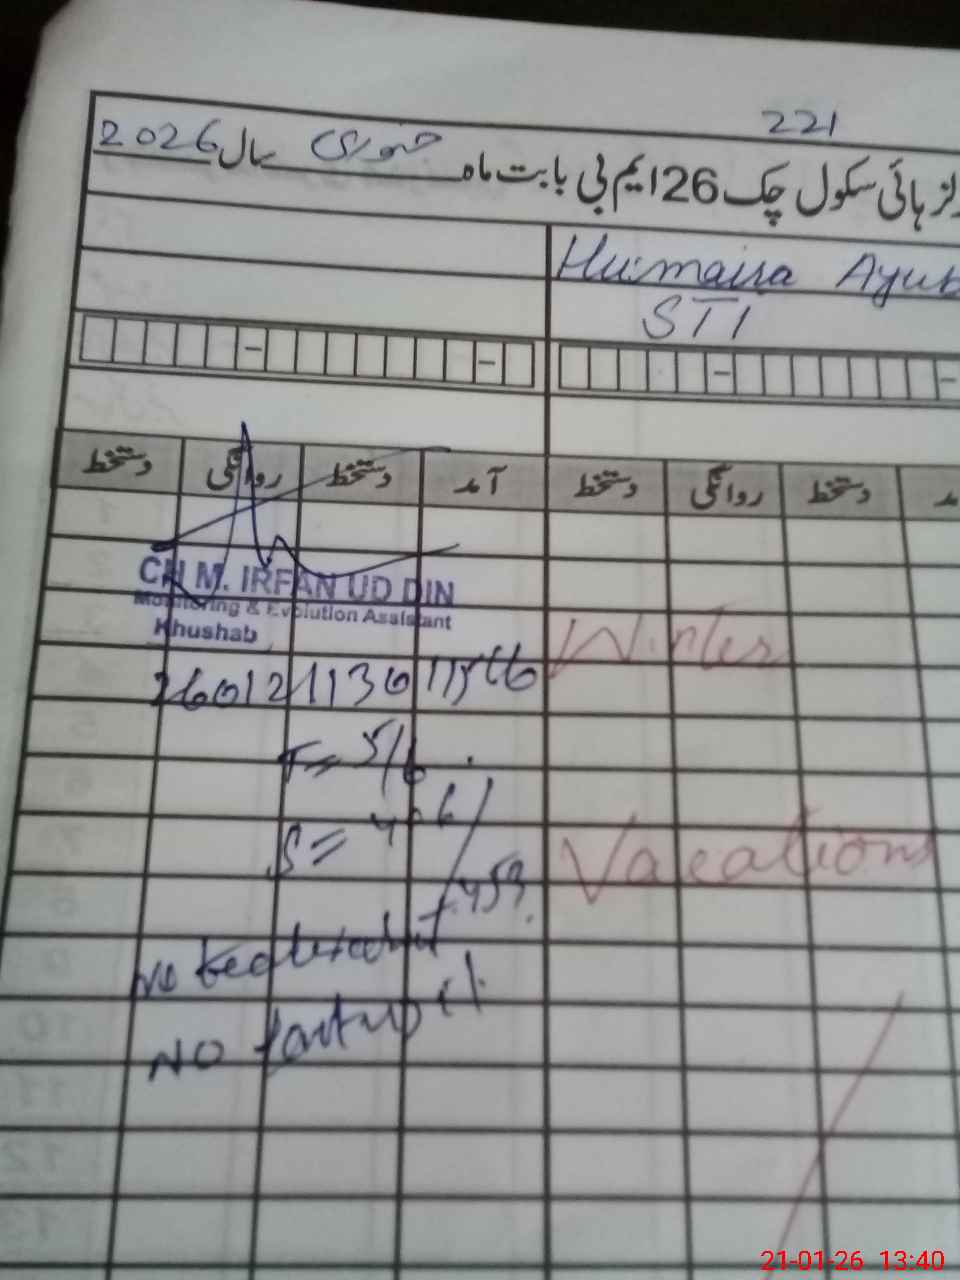 221
لز ہائی سکول چک 126 ایم بی بابت ماہ جنوری سال 2026
Humaira Ayub
STI
آمد دستخط روانگی دستخط
آمد دستخط روانگی دستخط
CH M. IRFAN UD DIN
Monitoring & Evolution Assistant
Khushab
T= 5/6
S= 406/453
No
NO
Winter
Vacations
21-01-26 13:40